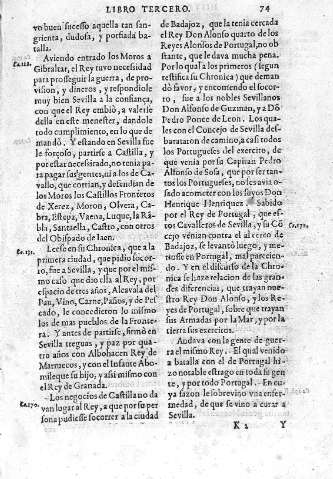 LIBRO TERCERO. 74
vo buen sucesso aquella tan san-
grienta, dudosa, y porfiada ba-
talla.
Aviendo entrado los Moros a
Gibraltar, el Rey tuvo necessidad
para prosseguir la guerra, de pro-
vision, y dineros, y respondiole
muy bien Sevilla à la confiança,
con que el Rey embiò, a valerse
della en este menester, dandole
todo cumplimiento, en lo que de-
mandò. Y estando en Sevilla fue
le forçoso, partirse a Castilla, y
por estar necessitado, no tenia pa-
ra pagar sus gentes, ni a los de Ca-
vallo, que corrian, y defendian de
los Moros los Castillos Fronteros
de Xerez, Moron, Olvera, Ca-
bra, Estepa, Vaena, Luque, la Rã-
bla, Santaella, Castro, con otros
del Obispado de Iaen.
Leese en su Chronica, que a la
primera ciudad, que pidio socor-
ro, fue a Sevilla, y que por el mis-
mo caso que dio ella al Rey, por
espacio de tres años, Alcavala del
Pan, Vino, Carne, Paños, y de Pes-
cado, le concedieron lo mismo
los de mas pueblos de la Fronte-
ra. Y antes de partirse, firmò en
Sevilla treguas, y paz por qua-
tro años con Albohacen Rey de
Marruecos, y con el Infante Abo-
mileque su hijo, y assi mismo con
el Rey de Granada.
Los negocios de Castilla no da
van lugar al Rey, a que por su per
sona pudiesse socorrer a la ciudad
de Badajoz, que la tenia cercada
el Rey Don Alonso quarto de los
Reyes Alonsos de Portugal, no ob-
stante, que le dava mucha pena.
Por lo qual a los primeros (segun
testifica su Chronica) que deman
dò favor, y encomendò el socor-
ro, fue a los nobles Sevillanos
Don Alfonso de Guzman, y a Dõ
Pedro Ponce de Leon. Los qua-
les con el Concejo de Sevilla desb-
barataron de camino, a casi todos
los Portugueses del exercito, de
que venia por su Capitan Pedro
Alfonso de Sosa, que por ser tan-
tos los Portugueses, no les avia o-
sado acometer con los suyos Don
Henrique Henriquez. Sabido
por el Rey de Portugal, que es-
tos Cavalleros de Sevilla, y su Cõ
cejo venian contra el al cerco de
Badajoz, se levantò luego, y me-
tiosse en Portugal, mal parecien-
do. Y en el discurso de la Chroni-
ca se haze relacion de las gran-
des diferencias, que trayan nues-
tro Rey Don Alonso, y los Re-
yes de Portugal, sobre que trayan
sus Armadas por la Mar, y por la
tierra sus exercitos.
Andava con la gente de gue-
rra el mismo Rey. El qual venido
a batalla con el de Portugal hi-
zo notable estrago en toda su gen
te, y por todo Portugal. En cu-
ya sazon le sobrevino una enfer-
medad, de que se vino a curar a
Sevilla.
K 2 Y